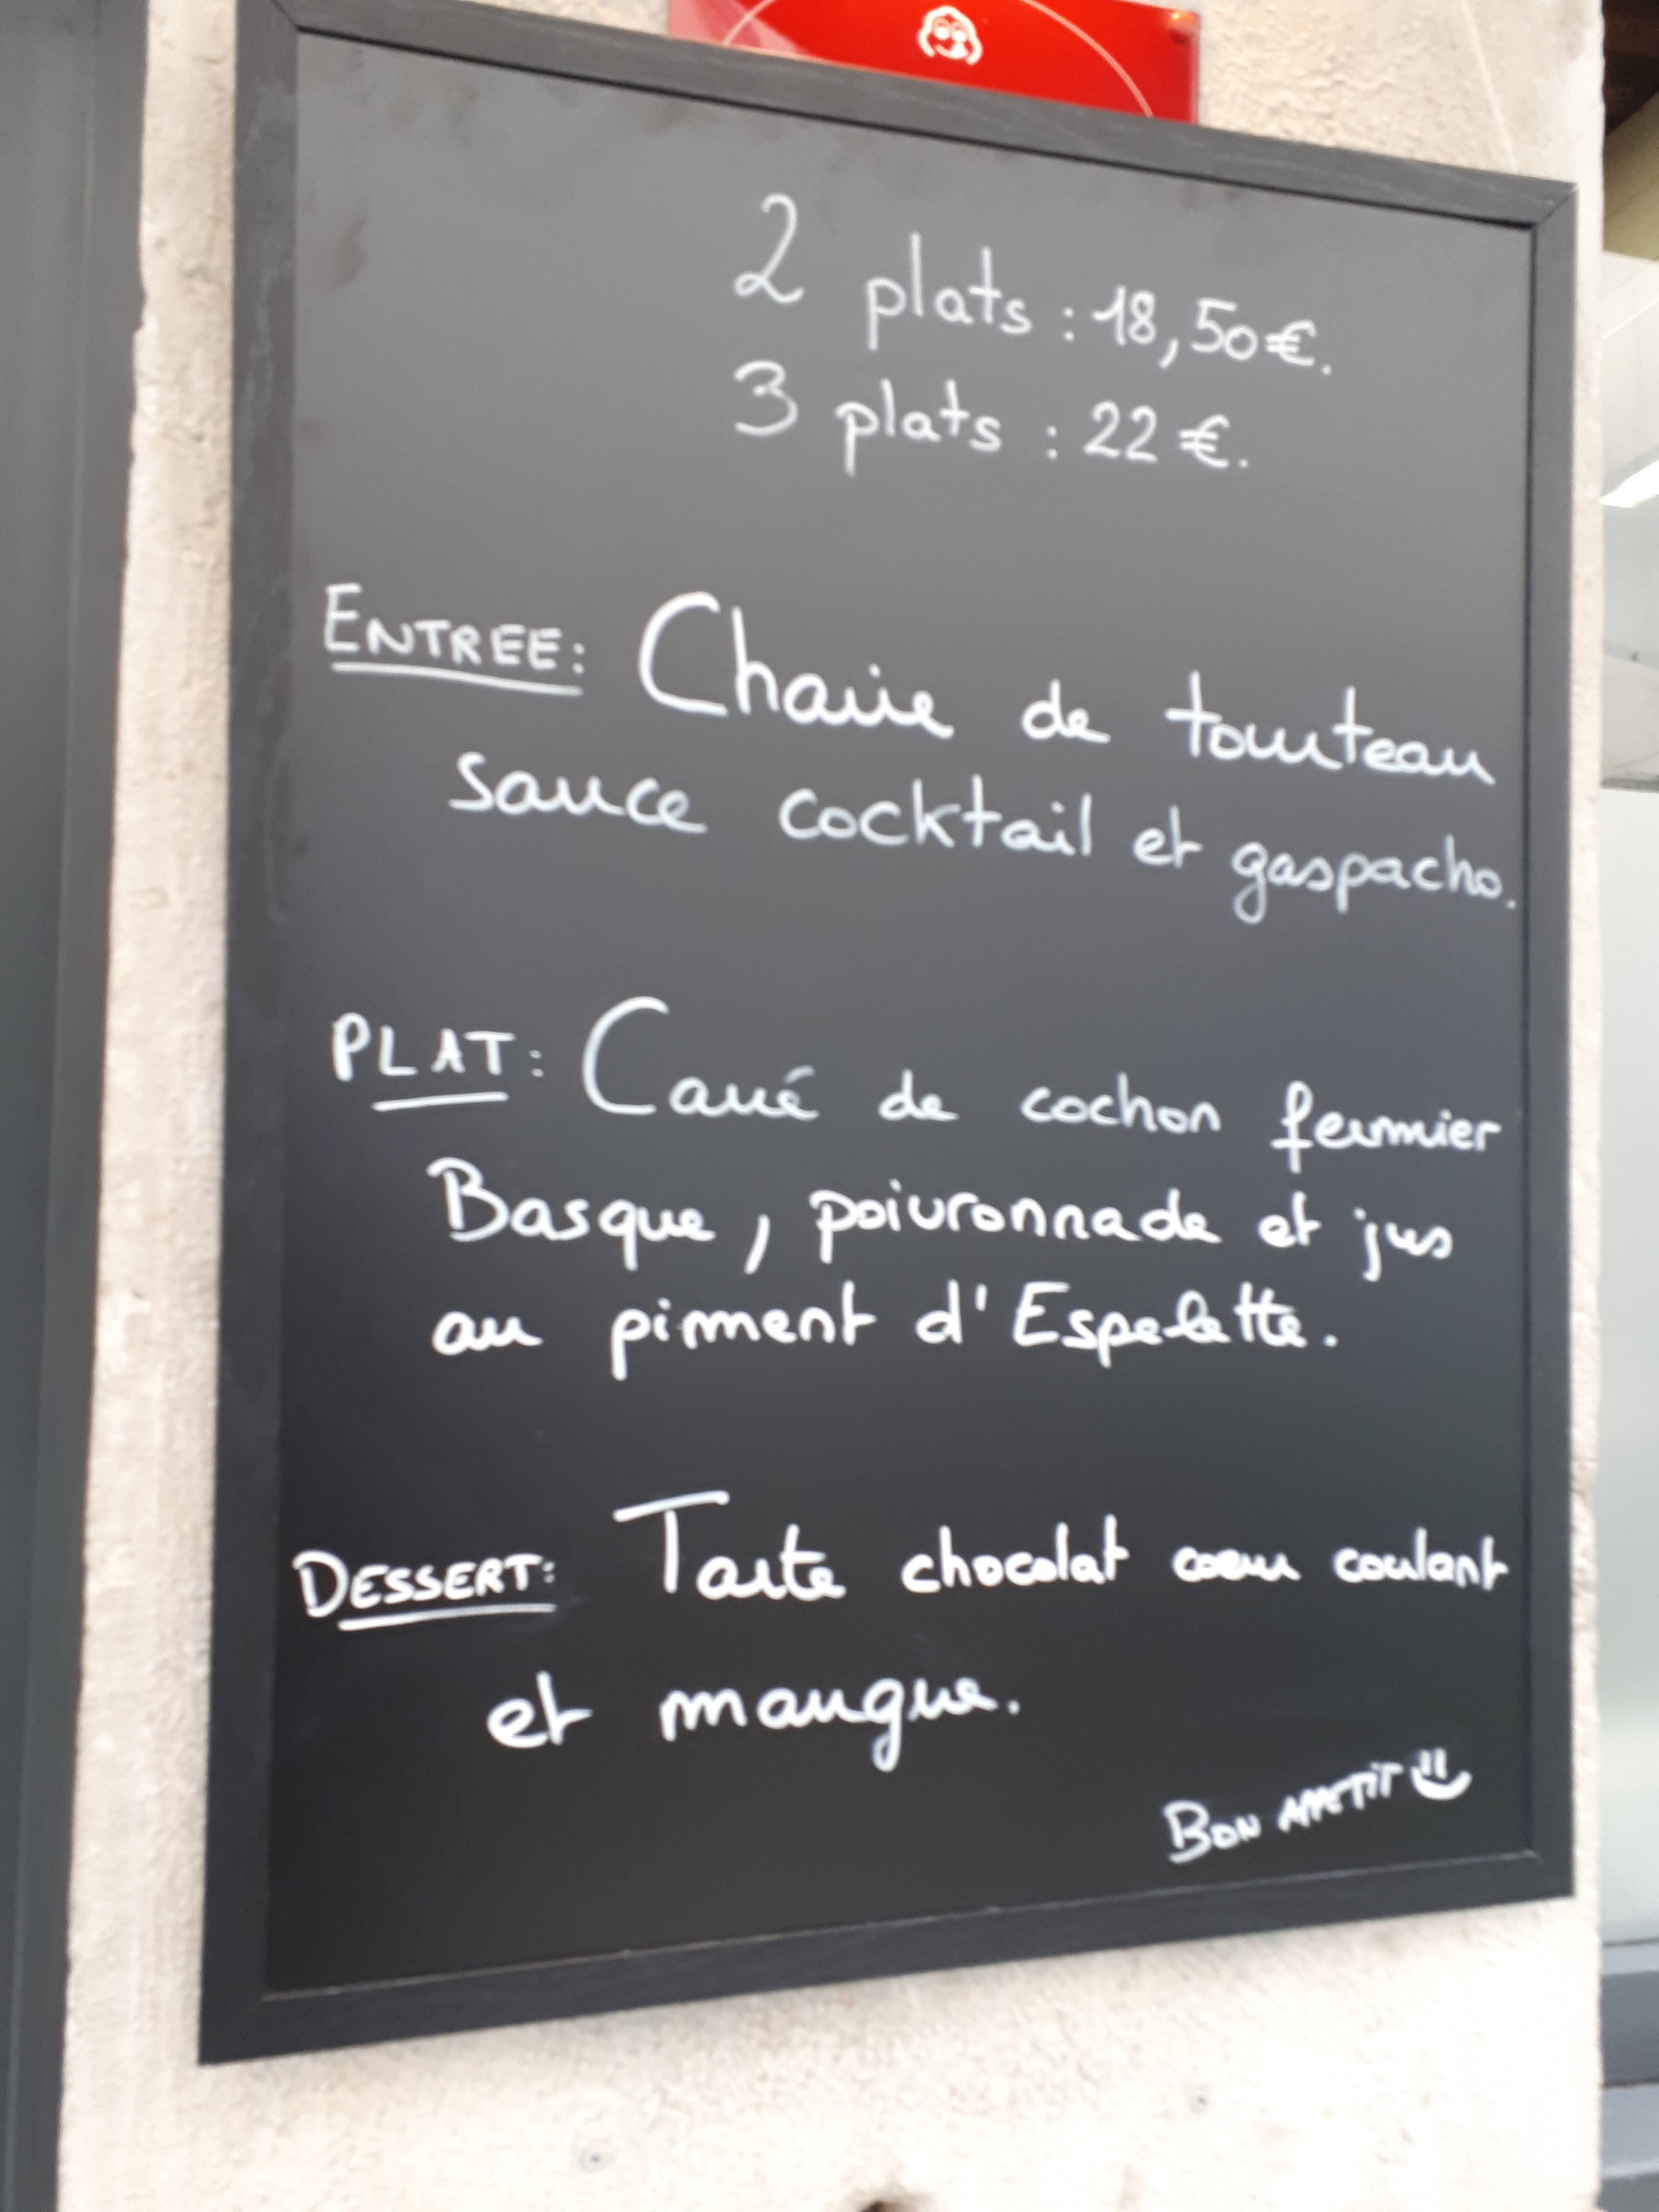 2 plats : 18,50€.
3 plats : 22 €.
ENTREE: Chaire de tourteau
sauce cocktail et gaspacho.
PLAT: Carré de cochon fermier
Basque, poivronnade et jus
au piment d'Espelette.
DESSERT: Tarte chocolat coeur coulant
et mangue.
BON APPETIT